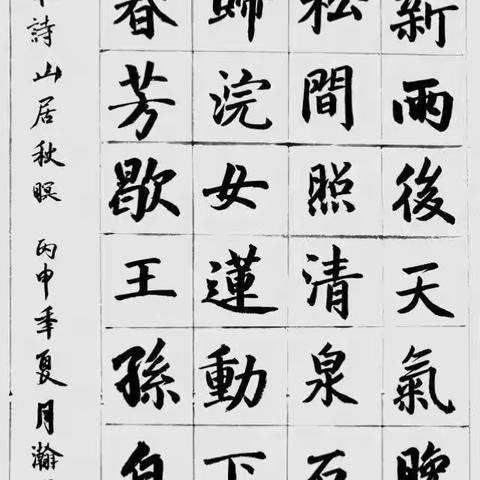 新雨後天氣晚
松間照清泉石
歸浣女蓮動下
春芳歇王孫自
詩山居秋暝 丙申年夏月瀚